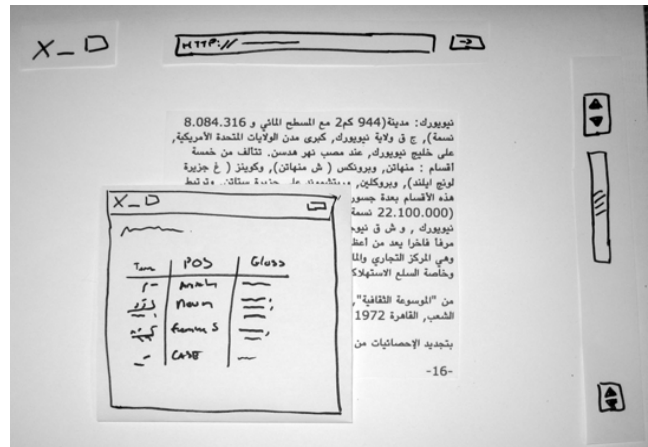 X_D
HTTP://
نيويورك: مدينة(944 كم2 مع المسطح المائي و 8.084.316
نسمة), ج ق ولاية نيويورك, كبرى مدن الولايات المتحدة الأمريكية,
على خليج نيويورك, عند مصب نهر هدسن. تتألف من خمسة
أقسام : منهاتن, وبرونكس ( ش منهاتن), وكوينز ( غ جزيرة
لونج ايلند), وبروكلين, وريتشموند على جزيرة ستاتن. وترتبط
هذه الأقسام بعدة جسور
(22.100.000 نسمة
نيويورك , و ش ق
مرفأ فاخرا يعد من
وهي المركز التجاري
وخاصة السلع
من "الموسوعة الثقافية",
الشعب, القاهرة 1972
بتجديد الإحصائيات من
-16-
X_D
POS Gloss
Noun
CASE